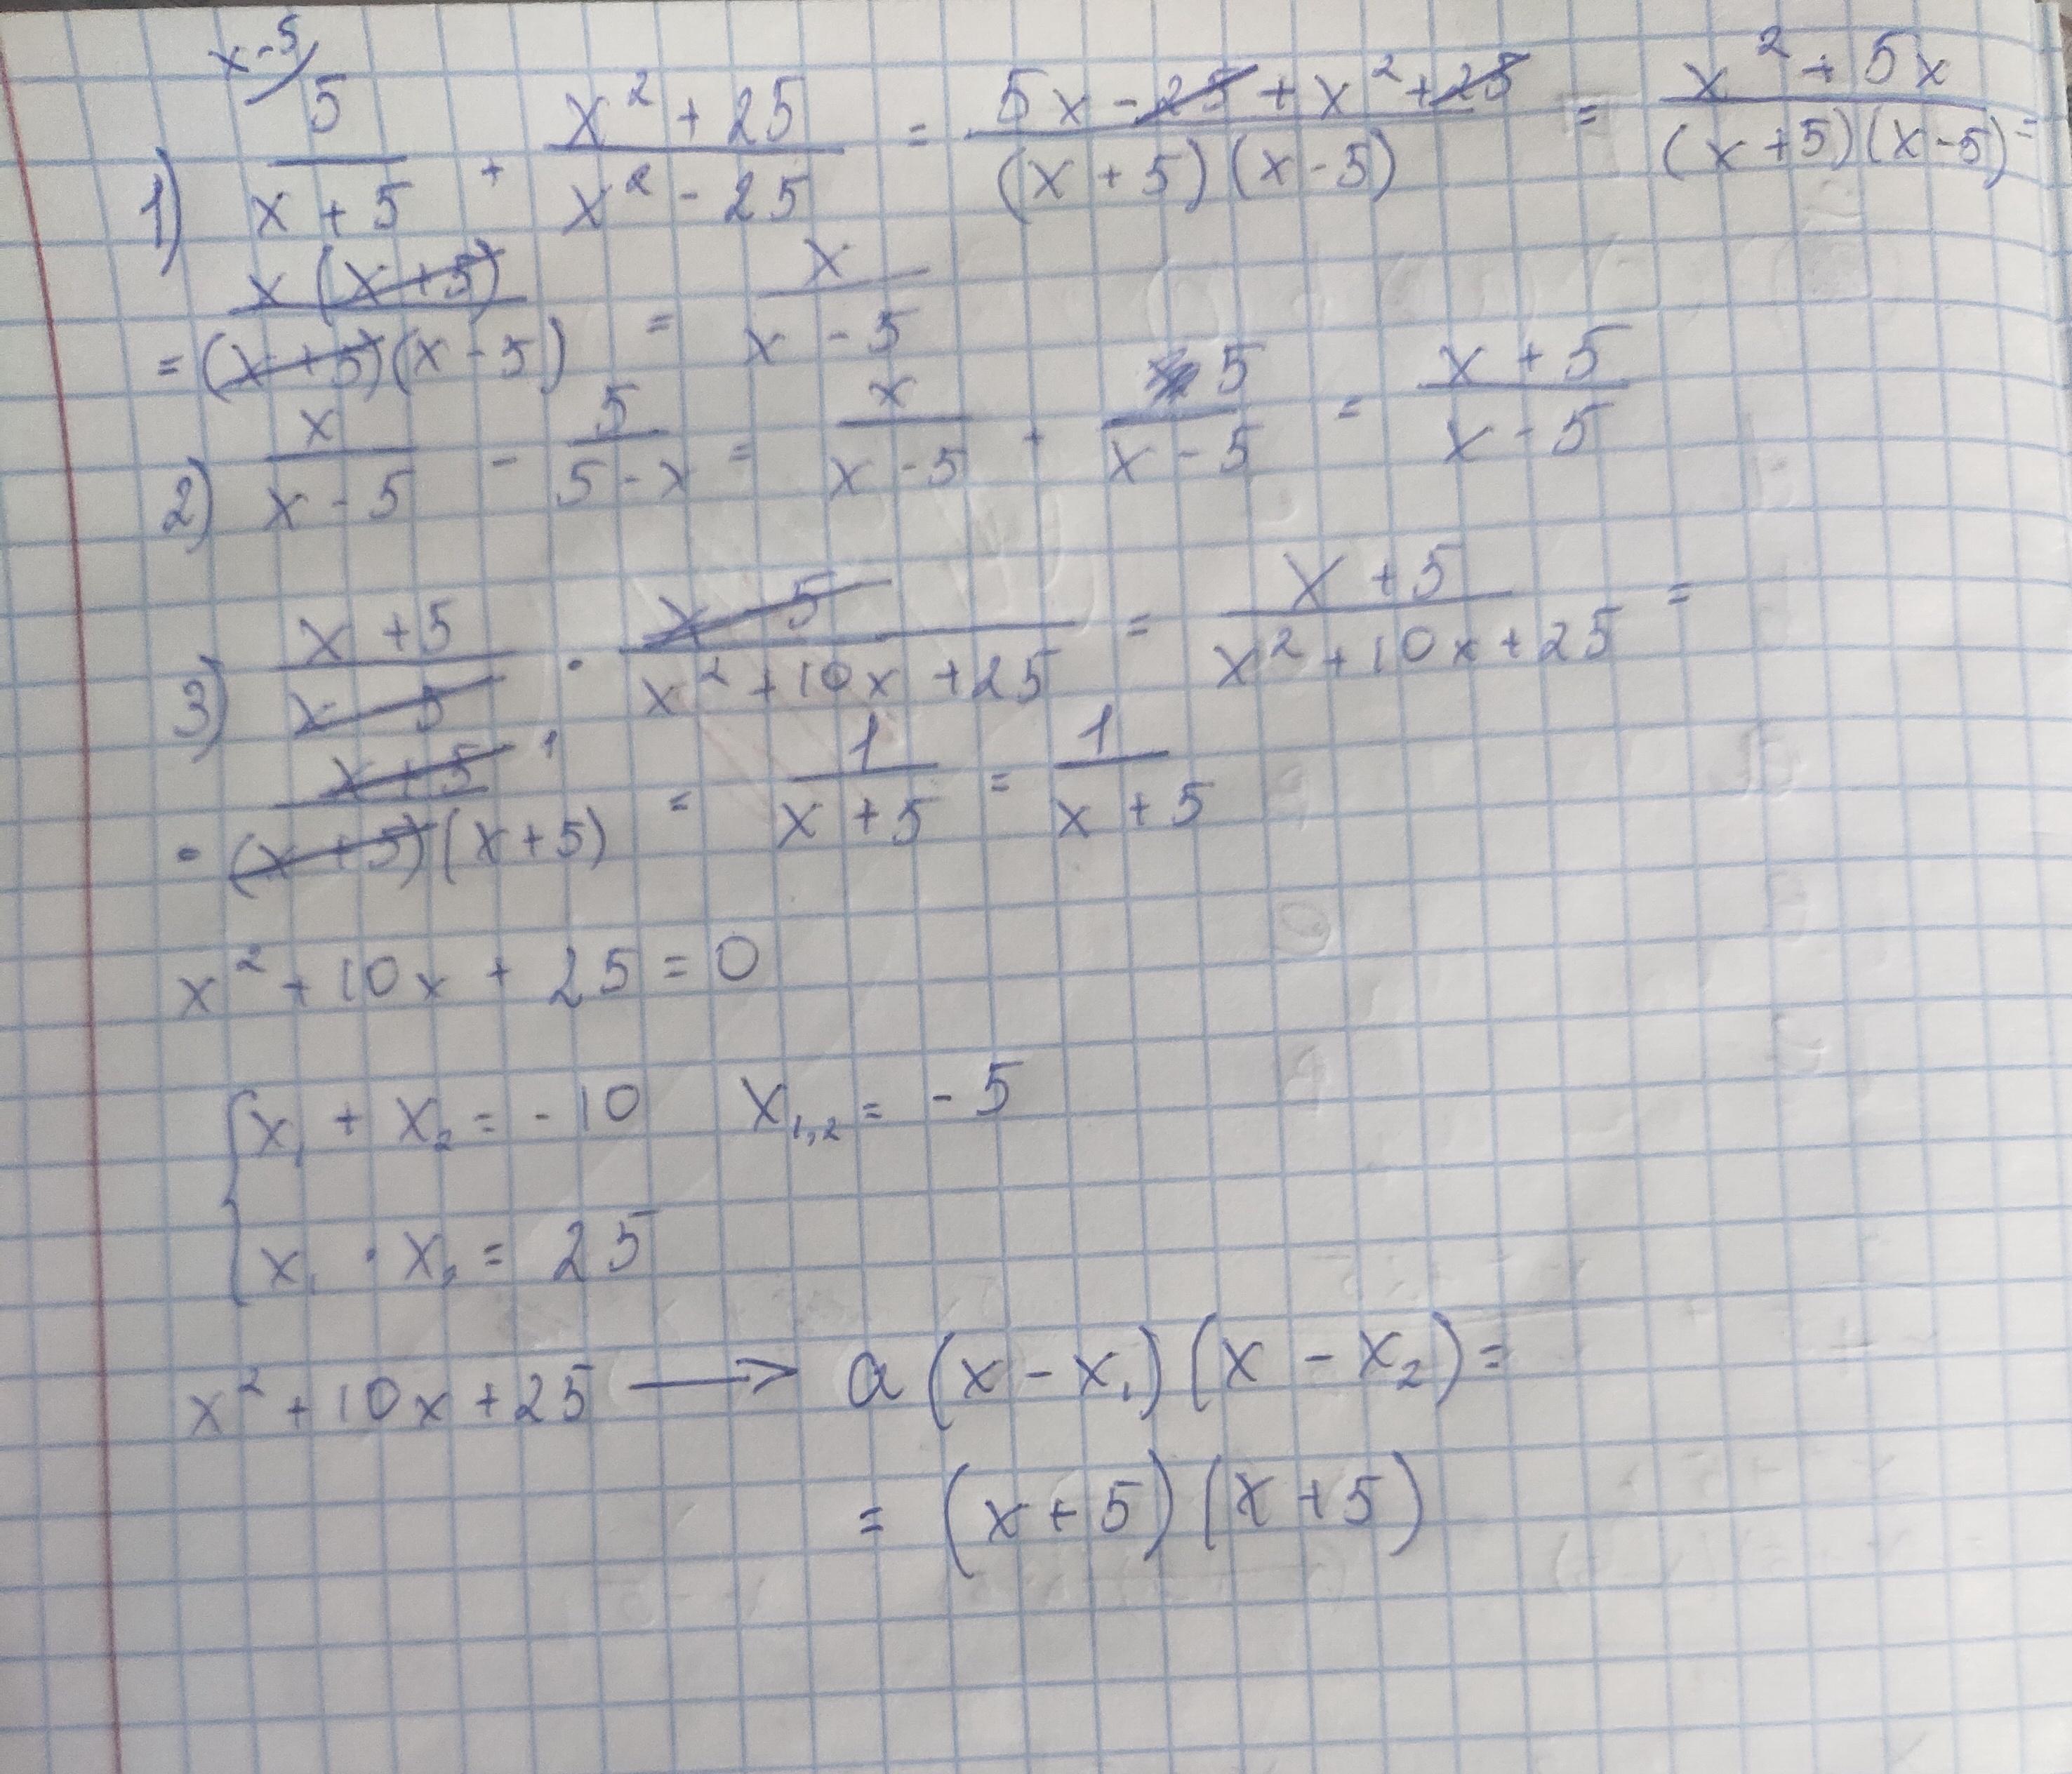 1) x-5/ 5/(x+5) + (x²+25)/(x²-25) = (5x-25+x²+25)/((x+5)(x-5)) = (x²+5x)/((x+5)(x-5)) =
= (x(x+5))/((x+5)(x-5)) = x/(x-5)
2) x/(x-5) - 5/(5-x) = x/(x-5) + 5/(x-5) = (x+5)/(x-5)
3) (x+5)/(x-5) · (x-5)/(x²+10x+25) = (x+5)/(x²+10x+25) =
= (x+5) 1/((x+5)(x+5)) = 1/(x+5) = 1/(x+5)
x²+10x+25=0
{x₁ + x₂ = -10 x₁,₂ = -5
x₁ · x₂ = 25
x²+10x+25 ⟶ a(x-x₁)(x-x₂)=
= (x+5)(x+5)